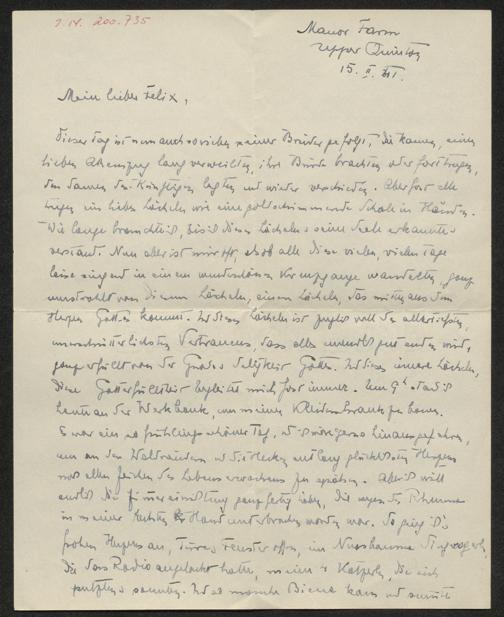 J. N. 200.735
Manor Farm
Upper Quinton
15. II. XI.
Mein lieber Felix,
Dieser Tag ist nun auch so vielen seiner Brüder gefolgt, die kamen, einen
lieben Atemzug lang verweilten, ihre Bürde brachten oder forttrugen,
den Samen des Künftigen legten und wieder verschieden. Aber fast alle
trugen ein liebes Lächeln wie eine goldschimmernde Schale in Händen.
Wie lange brauchte ich, bis ich dieses Lächeln seine Seele erkannte
verstand. Nun aber ist mir oft, als ob alle diese vielen, vielen Tage
leise singend in einem wundersamen Kreuzgange wandelten, ganz
umstrahlt von diesem Lächeln, einem Lächeln, das mitten aus dem
Herzen Gottes kommt. Und dieses Lächeln ist zugleich voll des allerseligsten,
unerschütterlichsten Vertrauens, dass alles unendlich gut enden wird,
ganz erfüllt von der Gnade Gottes. Und dieses innere Lächeln,
diese Gotterfülltheit begleitet mich fast immer. Um 9h stand ich
heute an der Werkbank, um meinen Kleiderschrank zu bauen.
Es war ein so frühlingsschöner Tag, und ich wäre gerne hinausgefahren,
um an den Waldrändern und die Hecken entlang glücklichsten Herzens
nach allen Zeichen des Lebenserwachens zu spähen. Aber ich will
endlich die Zimmereinrichtung ganz fertig haben, die wegen des Rheumas
in meiner rechten Hand unterbrochen worden war. So ging ich
frohen Herzens an, Türe, Fenster offen, im Nussbaume Singvögel,
die das Radio angelockt hatte, meine 4 Katzerln, die sich
putzten sonnten. Und manche Biene kam und summte